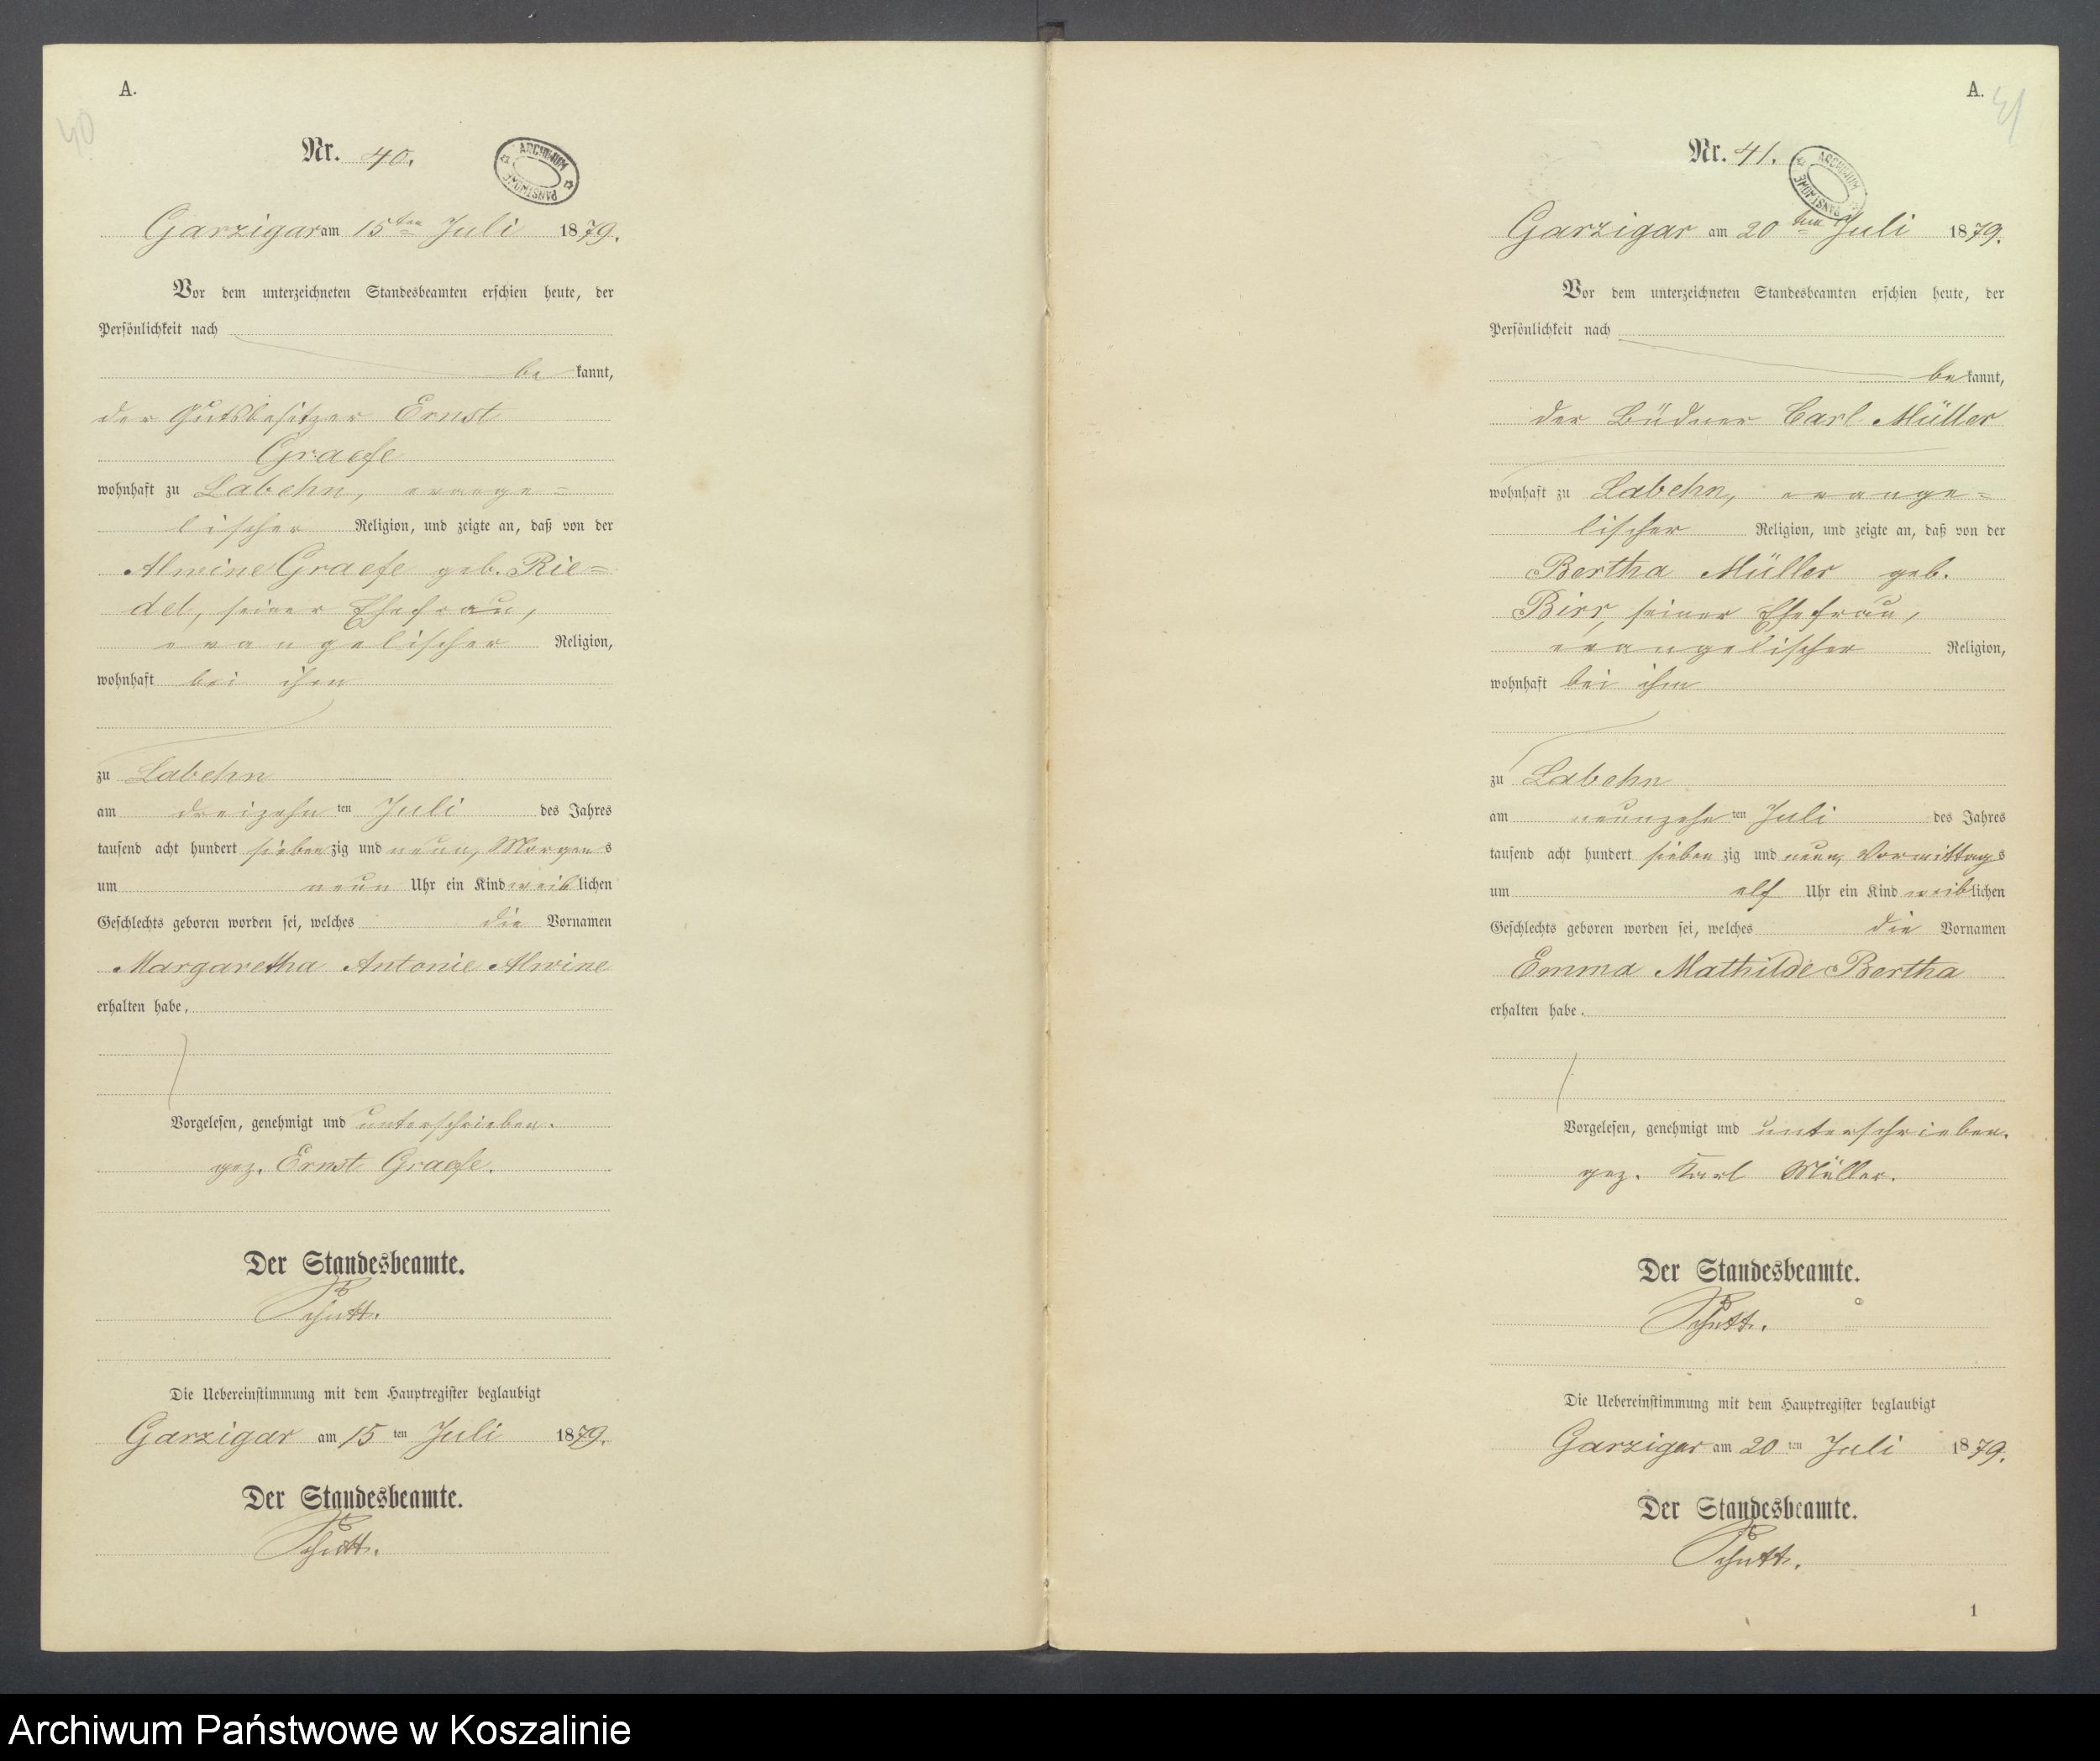 A.
40
Nr. 40.
ARCHIWUM PAŃSTWOWE
Garzigar am 15ten Juli 1879.
Vor dem unterzeichneten Standesbeamten erschien heute, der
Persönlichkeit nach
be kannt,
der Gutsbesitzer Ernst
Graefe
wohnhaft zu Labehn, evange=
lischer Religion, und zeigte an, daß von der
Alwine Graefe geb. Rie=
del, seiner Ehefrau,
evangelischer Religion,
wohnhaft bei ihm
zu Labehn
am dreizehn ten Juli des Jahres
tausend acht hundert sieben zig und neun, Morgens
um neun Uhr ein Kind weiblichen
Geschlechts geboren worden sei, welches die Vornamen
Margaretha Antonie Alwine
erhalten habe.
Vorgelesen, genehmigt und unterschrieben.
gez. Ernst Graefe.
Der Standesbeamte.
Schutt.
Die Uebereinstimmung mit dem Hauptregister beglaubigt
Garzigar am 15 ten Juli 1879.
Der Standesbeamte.
Schutt.
A.
41
Nr. 41.
ARCHIWUM PAŃSTWOWE
Garzigar am 20 ten Juli 1879.
Vor dem unterzeichneten Standesbeamten erschien heute, der
Persönlichkeit nach
be kannt,
der Büdner Carl Müller
wohnhaft zu Labehn, evange=
lischer Religion, und zeigte an, daß von der
Bertha Müller geb.
Birr, seiner Ehefrau,
evangelischer Religion,
wohnhaft bei ihm
zu Labehn
am neunzehn ten Juli des Jahres
tausend acht hundert sieben zig und neun, Vormittags
um elf Uhr ein Kind weiblichen
Geschlechts geboren worden sei, welches die Vornamen
Emma Mathilde Bertha
erhalten habe.
Vorgelesen, genehmigt und unterschrieben.
gez. Karl Müller.
Der Standesbeamte.
Schutt.
Die Uebereinstimmung mit dem Hauptregister beglaubigt
Garzigar am 20 ten Juli 1879.
Der Standesbeamte.
Schutt.
1
Archiwum Państwowe w Koszalinie